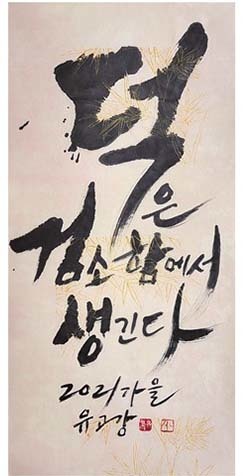 덕은
검소함에서
생긴다
2021 가을
유고강